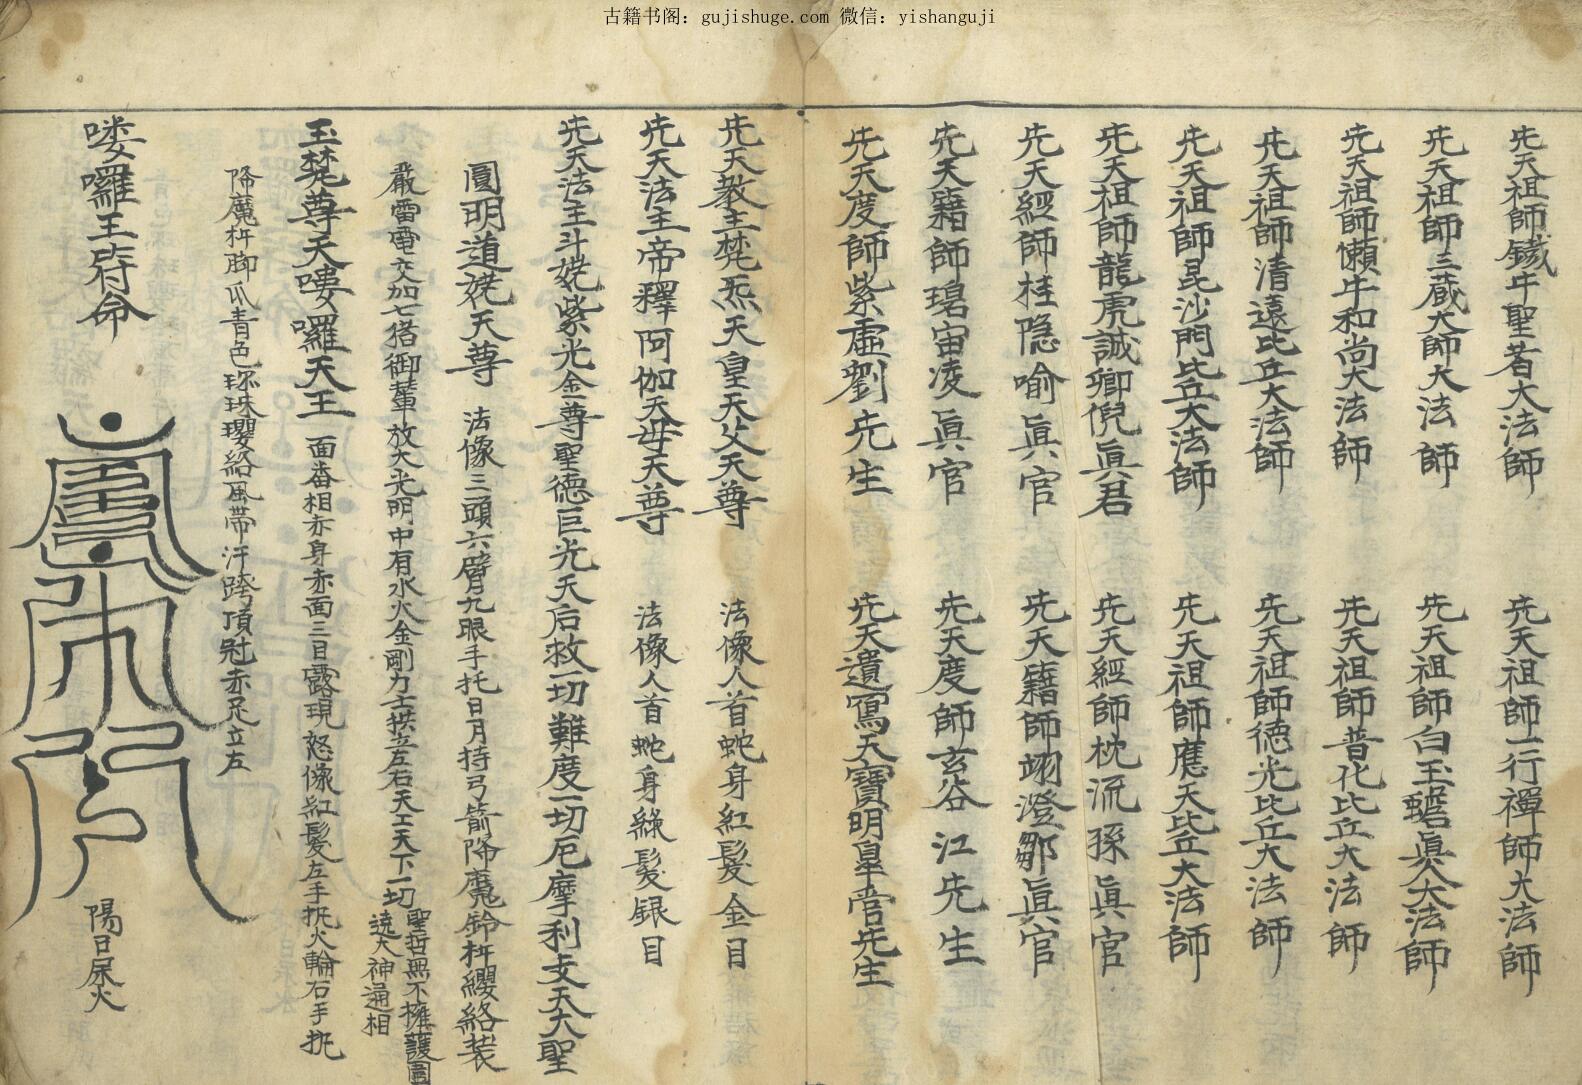 古籍书阁：gujishuge.com 微信：yishanguji
先天祖師鐵牛聖者大法師 先天祖師一行禪師大法師
先天祖師三藏大師大法師 先天祖師白玉蟾眞人大法師
先天祖師懶牛和尚大法師 先天祖師普化比丘大法師
先天祖師清遠比丘大法師 先天祖師德光比丘大法師
先天祖師昆沙門比丘大法師 先天祖師應天比丘大法師
先天祖師龍虎誠卿倪眞君 先天經師枕流孫眞官
先天經師桂隐喻眞官 先天籍師翊澄鄒眞官
先天籍師珺宙凌眞官 先天度師玄谷江先生
先天度師紫虛劉先生 先天遺寫天寶明皐管先生
先天教主梵炁天皇天父天尊 法像人首蛇身紅髮金目
先天法主帝釋阿伽天母天尊 法像人首蛇身綠髮銀目
先天法主斗姥紫光金尊聖德巨光天后救一切難度一切厄摩利支天大聖
圓明道姥天尊 法像三頭六臂九眼手托日月持弓箭降魔鈴杵纓絡裝
嚴雷電交加七猪御輦放大光明中有水火金剛力士拱立左右天上天下一切聖哲無不擁護圍遶大神通相
玉梵尊天嘍囉天王 面畨相赤身赤面三目露現怒像紅髮左手执火輪右手执
降魔杵脚爪青色琢珠瓔絡風帶汗跨頂冠赤足立左
喽囉王符命
陽日屎火